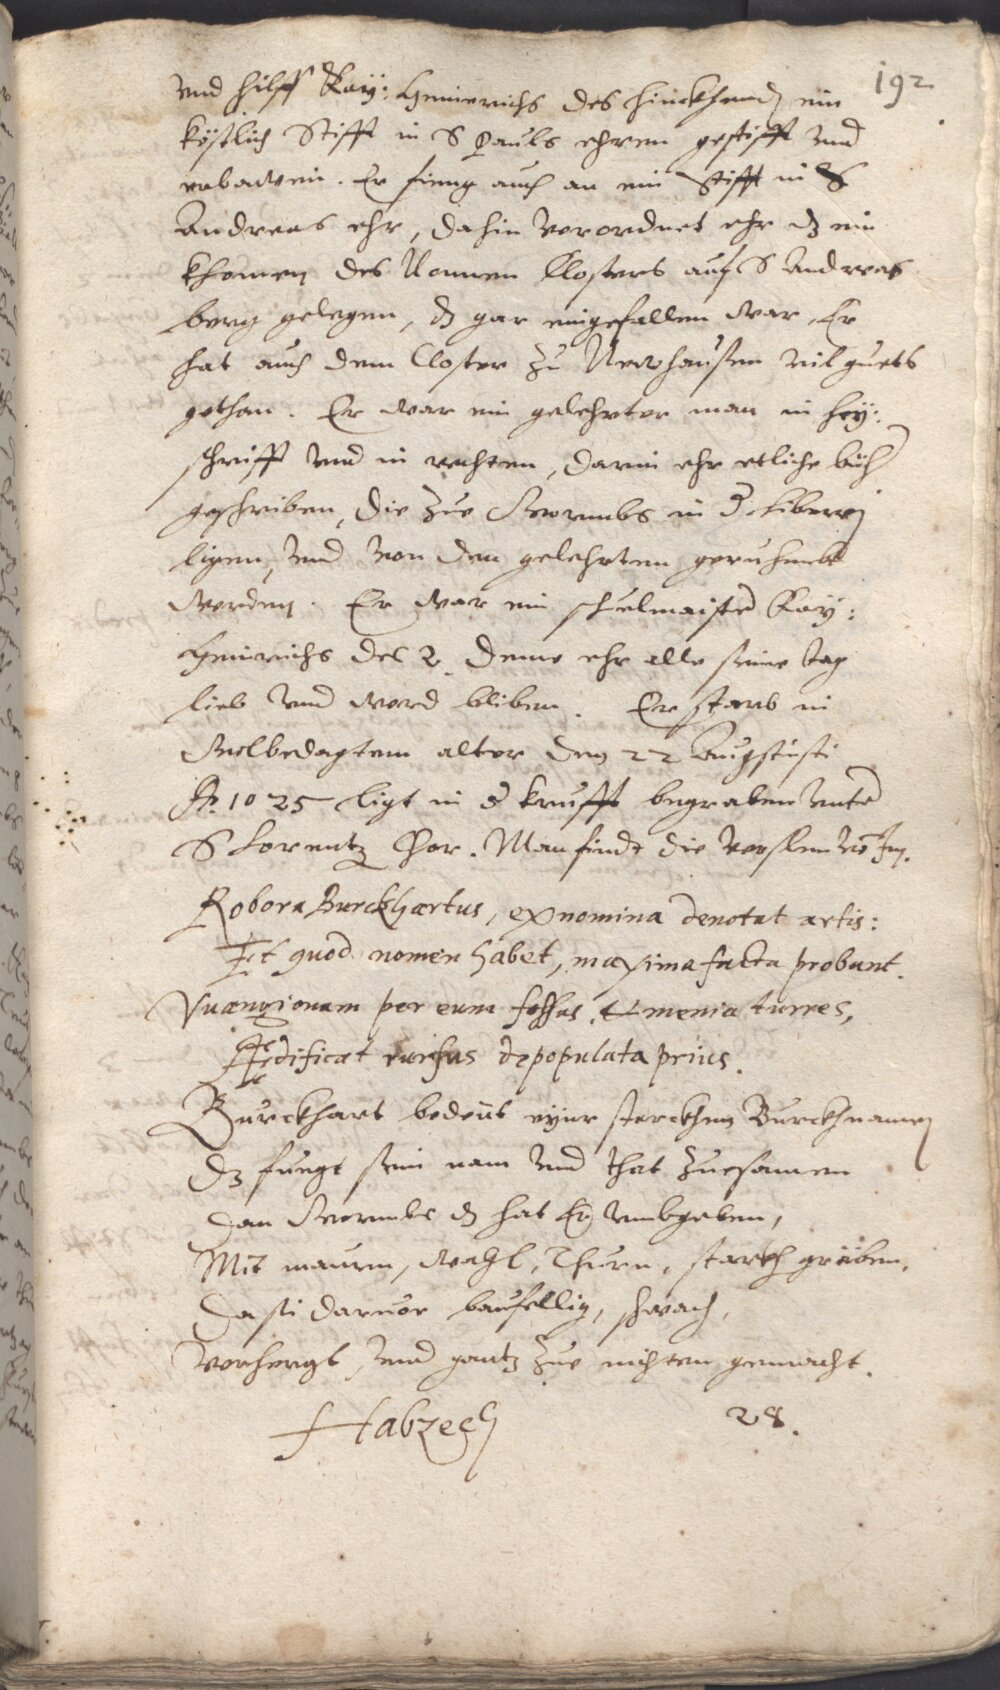 192
vnd hilff Kay: Heinrichs des hinckhend, ein
köstlich Stifft in S Pauls ehren gestifft vnd
erbawen. Er fieng auch an ein Stifft in S
Andreas ehr, dahin verordnet ehr dz ein
khomen des Nonnen Closters auf S Andreas
berg gelegen, dz gar eingefallen war, Er
hat auch dem Closter zu Newhausen vil guets
gethan. Er war ein gelehrter man in hey:
schrifft vnd in rechten, darin ehr etliche büch
geschriben, die zue Wormbs in d Liberej
ligen, vnd von den gelehrten geruhmbt
werden. Er war ein schuelmaister Kay:
Heinrichs des 2. deme ehr alle seine tag
lieb vnd werd bliben. Er starb in
Wolbedagtem alter den 22 Augstusti
Ao. 1025 ligt in d krufft begraben vnter
S Lorentz Chor. Man findt die verslen vō Im.
Robora Burckhartus, ex nomina denotat artis:
Et quod nomen habet, maxima facta probunt.
Vuangionam per eum fossas, & menia turres,
Aedificat rursus depopulata prius.
Burckhart bedeut eyner sterckhen Burckh namen
Dz fuegt sein nam vnd that zuesamen
Dan Wormbs dz hat Er vmbgeben,
Mit mauren, wahl, Thurn, starckh gräben,
Da sie daruor baufellig, schwach,
Verhergt, vnd gantz zue nichten gemacht.
Habzech 28.